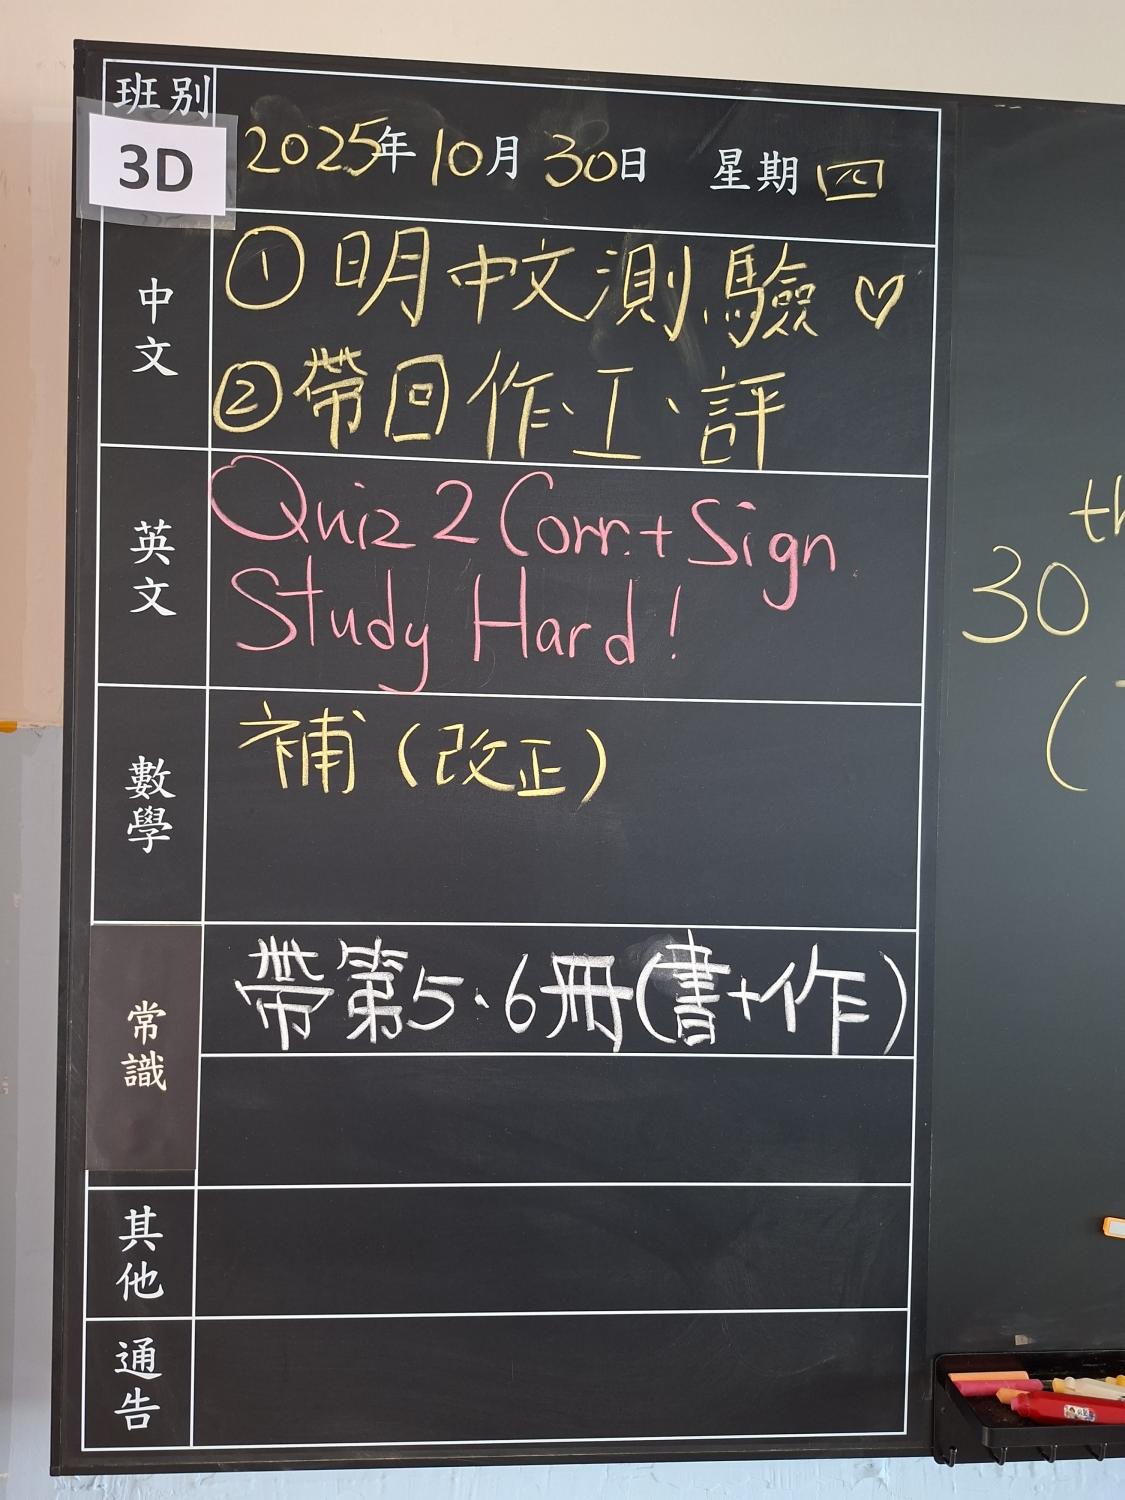 班別
3D
2025年10月30日 星期四
中文
① 明中文測驗♡
② 帶回作、工、評
英文
Quiz 2 Corr. + Sign
Study Hard!
數學
補(改正)
常識
帶第5、6冊(書+作)
其他
通告
th
30
(